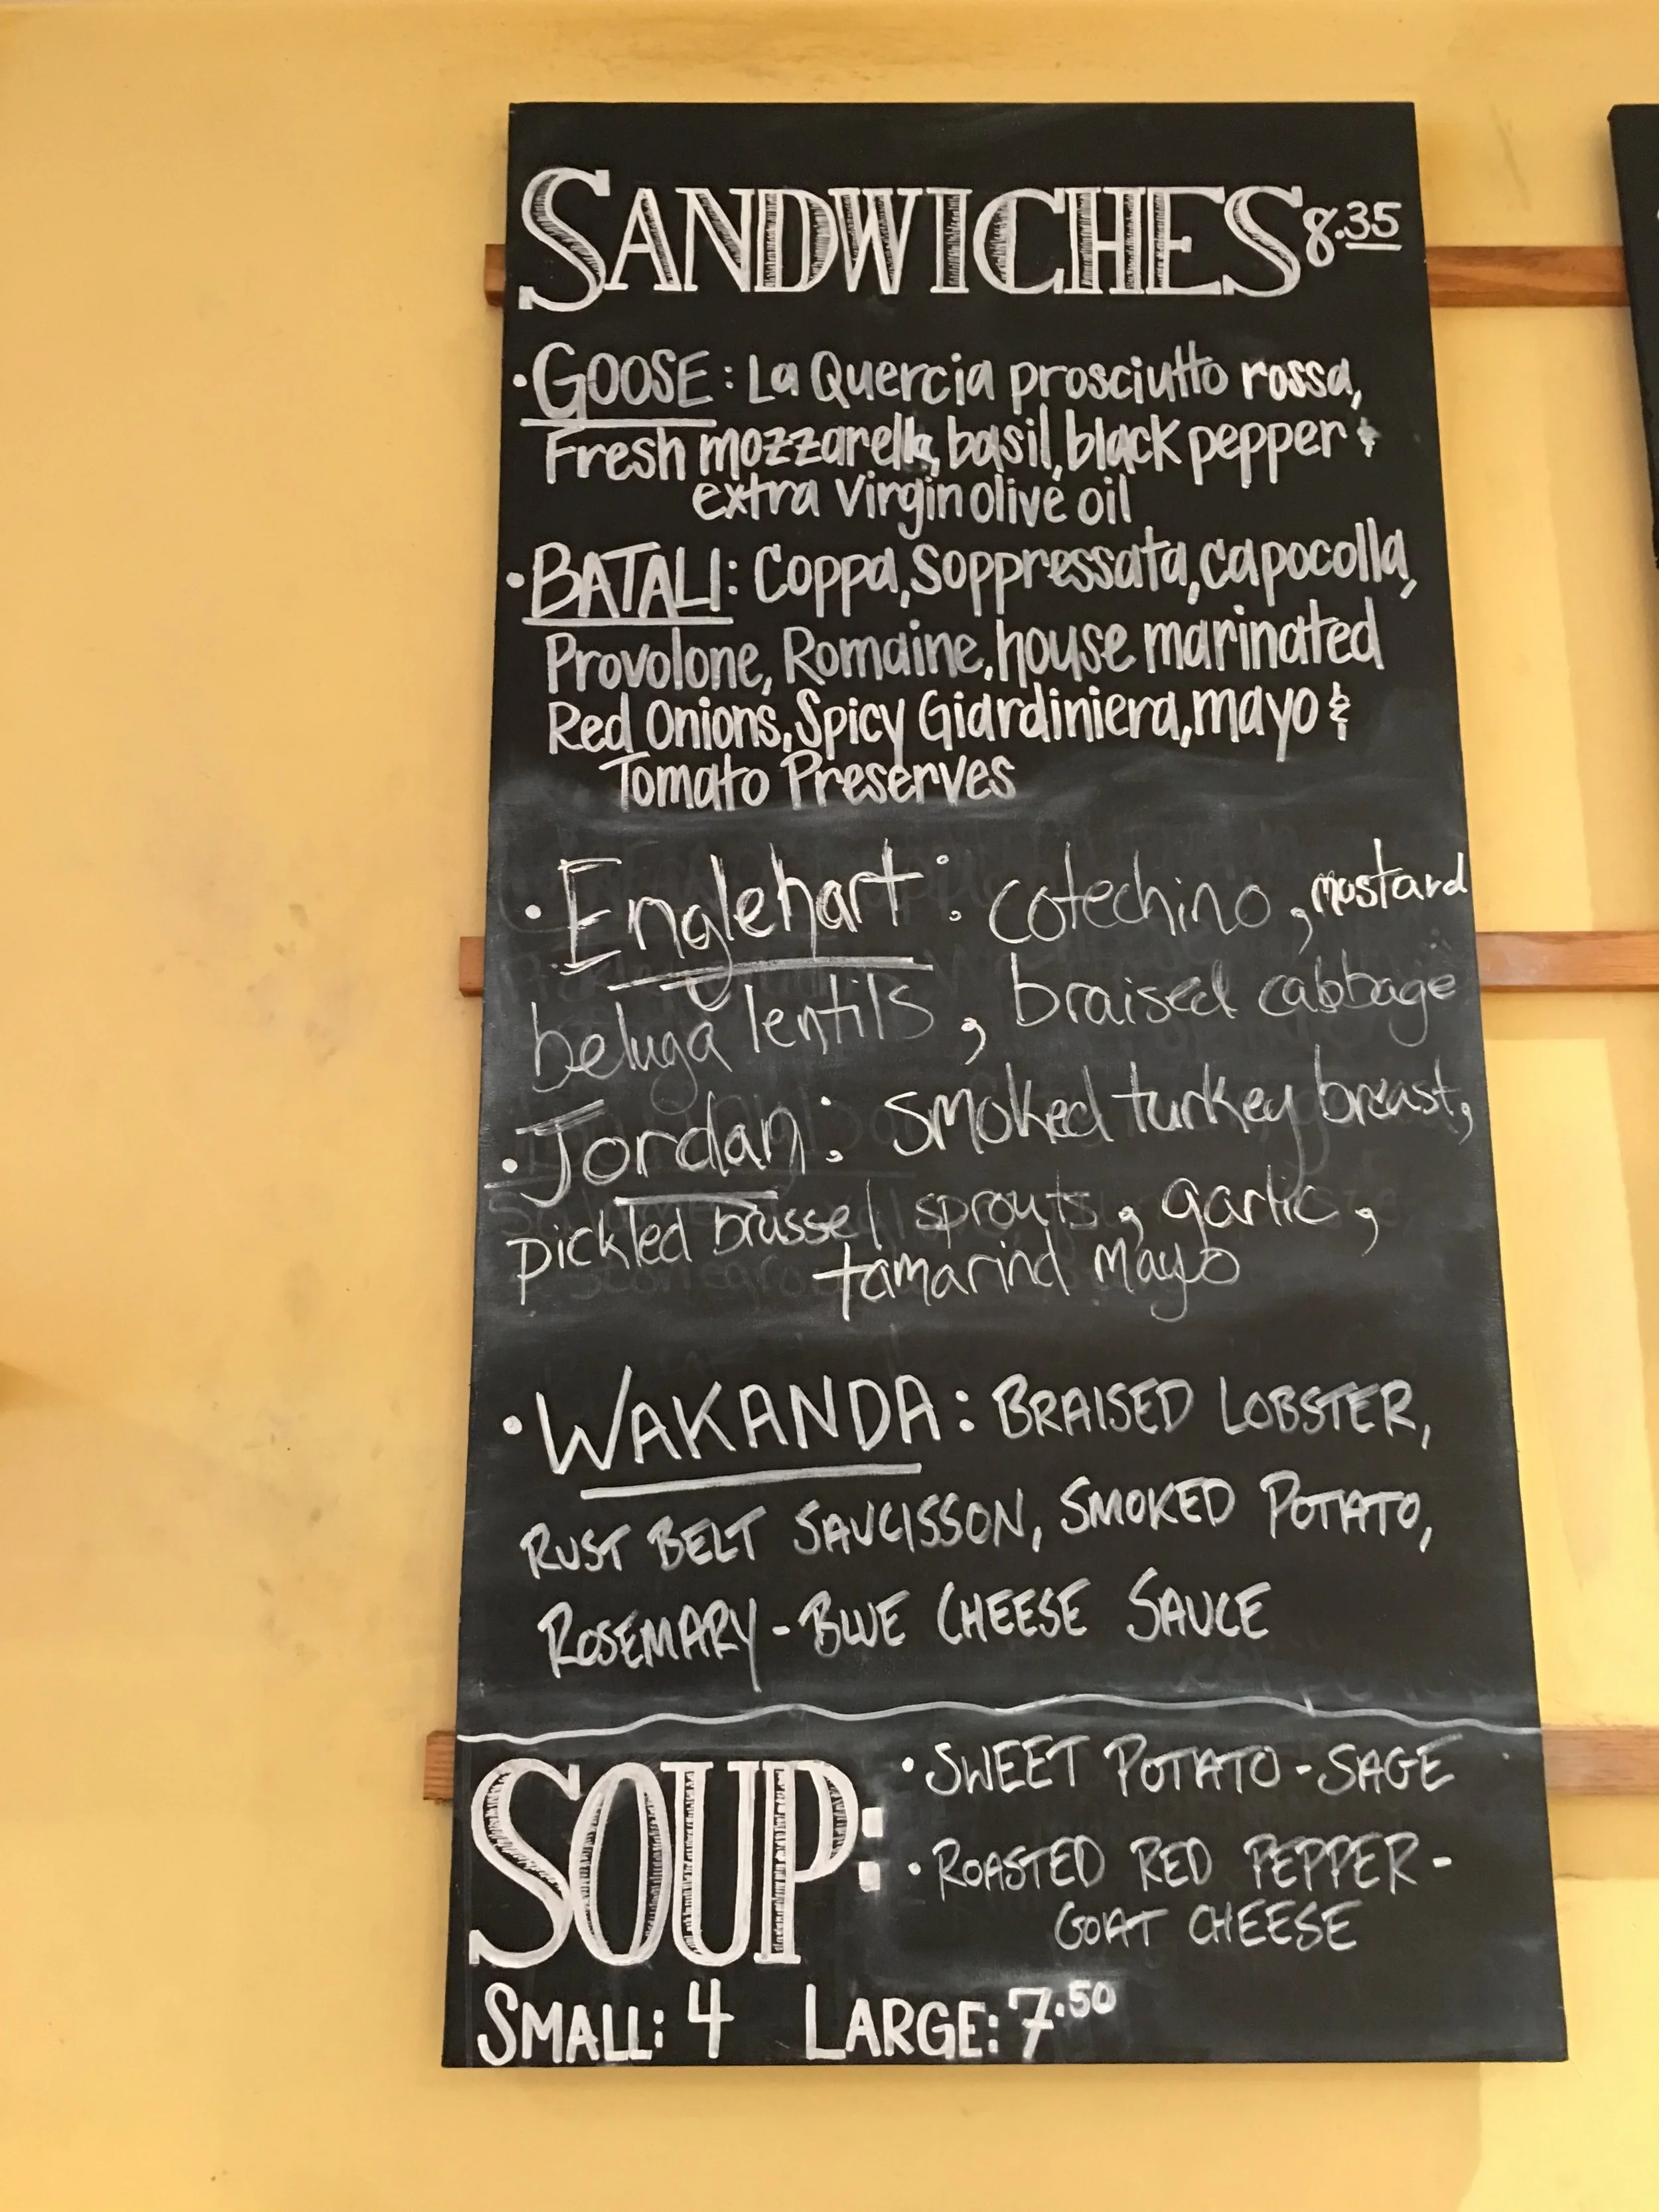 SANDWICHES 8.35
• GOOSE: La Quercia prosciutto rossa,
Fresh mozzarella, basil, black pepper &
extra Virgin olive oil
• BATALI: Coppa, Soppressata, capocolla,
Provolone, Romaine, house marinated
Red Onions, Spicy Giardiniera, mayo &
Tomato Preserves
• Englehart: cotechino, mustard
beluga lentils, braised cabbage
• Jordan: smoked turkey breast,
pickled brussel sprouts, garlic,
tamarind mayo
• WAKANDA: BRAISED LOBSTER,
RUST BELT SAUCISSON, SMOKED POTATO,
ROSEMARY-BLUE CHEESE SAUCE
SOUP:
• SWEET POTATO-SAGE
• ROASTED RED PEPPER-
GOAT CHEESE
SMALL: 4 LARGE: 7.50